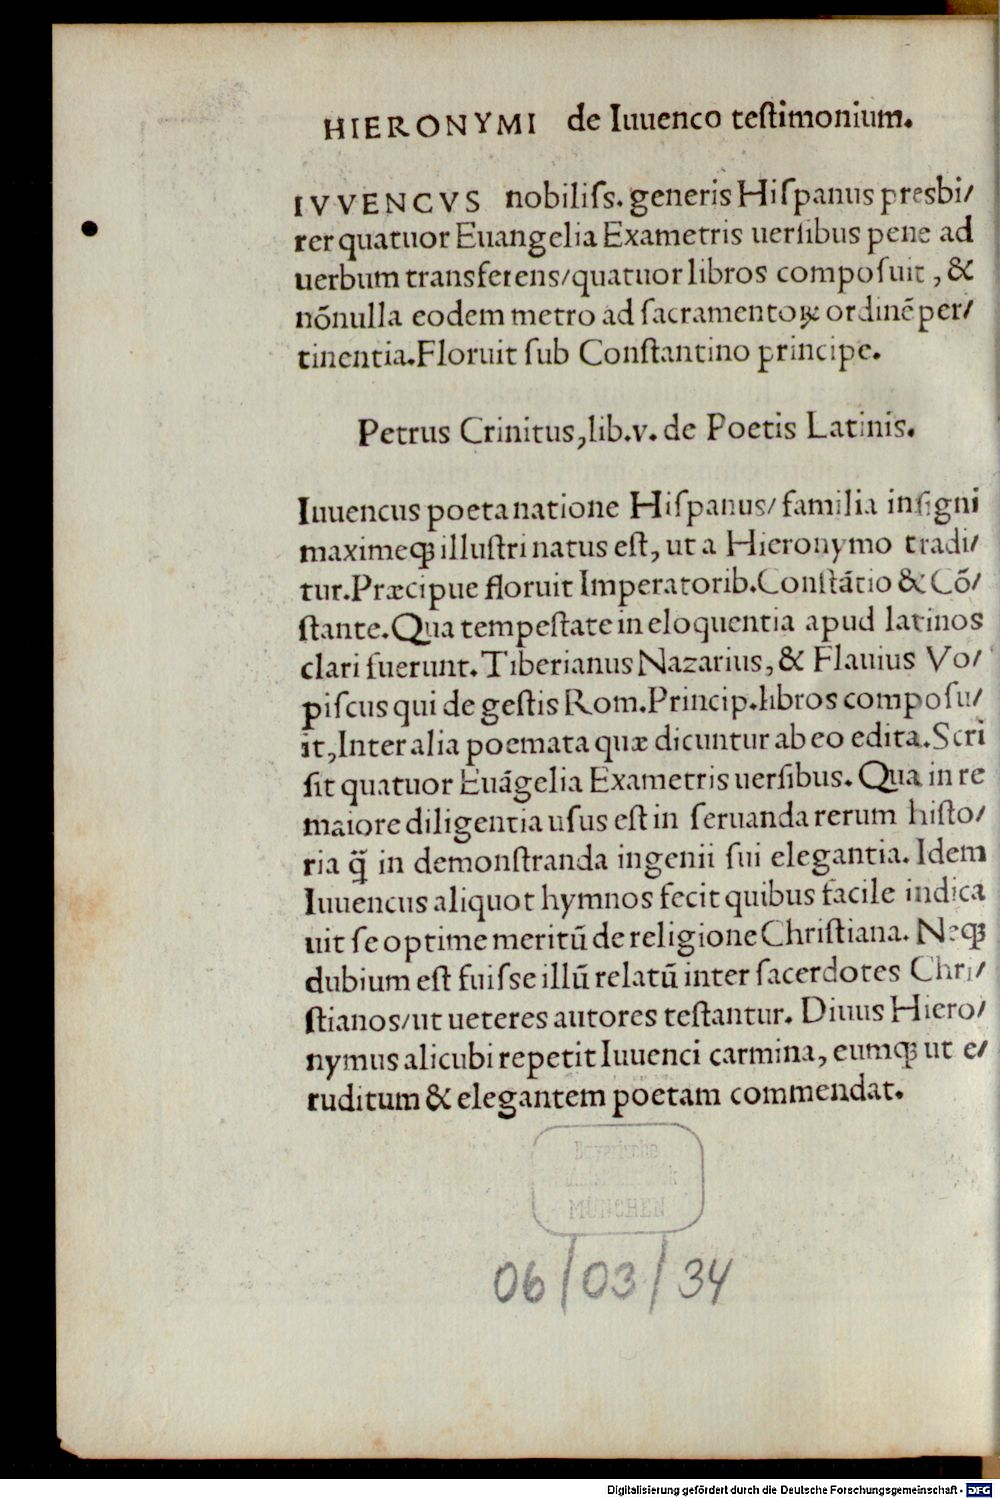 HIERONYMI de Iuuenco teſtimonium.
IVVENCVS nobiliſs. generis Hiſpanus presbi/
ter quatuor Euangelia Exametris uerſibus pene ad
uerbum transferens/quatuor libros compoſuit, &
nõnulla eodem metro ad ſacramentoꝝ ordinẽ per/
tinentia. Floruit ſub Conſtantino principe.
Petrus Crinitus, lib. v. de Poetis Latinis.
Iuuencus poeta natione Hiſpanus/ familia inſigni
maximeqꝫ illuſtri natus eſt, ut a Hieronymo tradi/
tur. Præcipue floruit Imperatorib. Conſtãtio & Cõ/
ſtante. Qua tempeſtate in eloquentia apud latinos
clari fuerunt. Tiberianus Nazarius, & Flauius Vo/
piſcus qui de geſtis Rom. Princip. libros compoſu/
it, Inter alia poemata quæ dicuntur ab eo edita. Scri
ſit quatuor Euãgelia Exametris uerſibus. Qua in re
maiore diligentia uſus eſt in ſeruanda rerum hiſto/
ria q̃ in demonſtranda ingenii ſui elegantia. Idem
Iuuencus aliquot hymnos fecit quibus facile indica
uit ſe optime meritũ de religione Chriſtiana. Neqꝫ
dubium eſt fuiſse illũ relatũ inter ſacerdotes Chri/
ſtianos/ut ueteres autores teſtantur. Diuus Hiero/
nymus alicubi repetit Iuuenci carmina, eumqꝫ ut e/
ruditum & elegantem poetam commendat.
Bayerische
MÜNCHEN
06/03/34
Digitalisierung gefördert durch die Deutsche Forschungsgemeinschaft - DFG